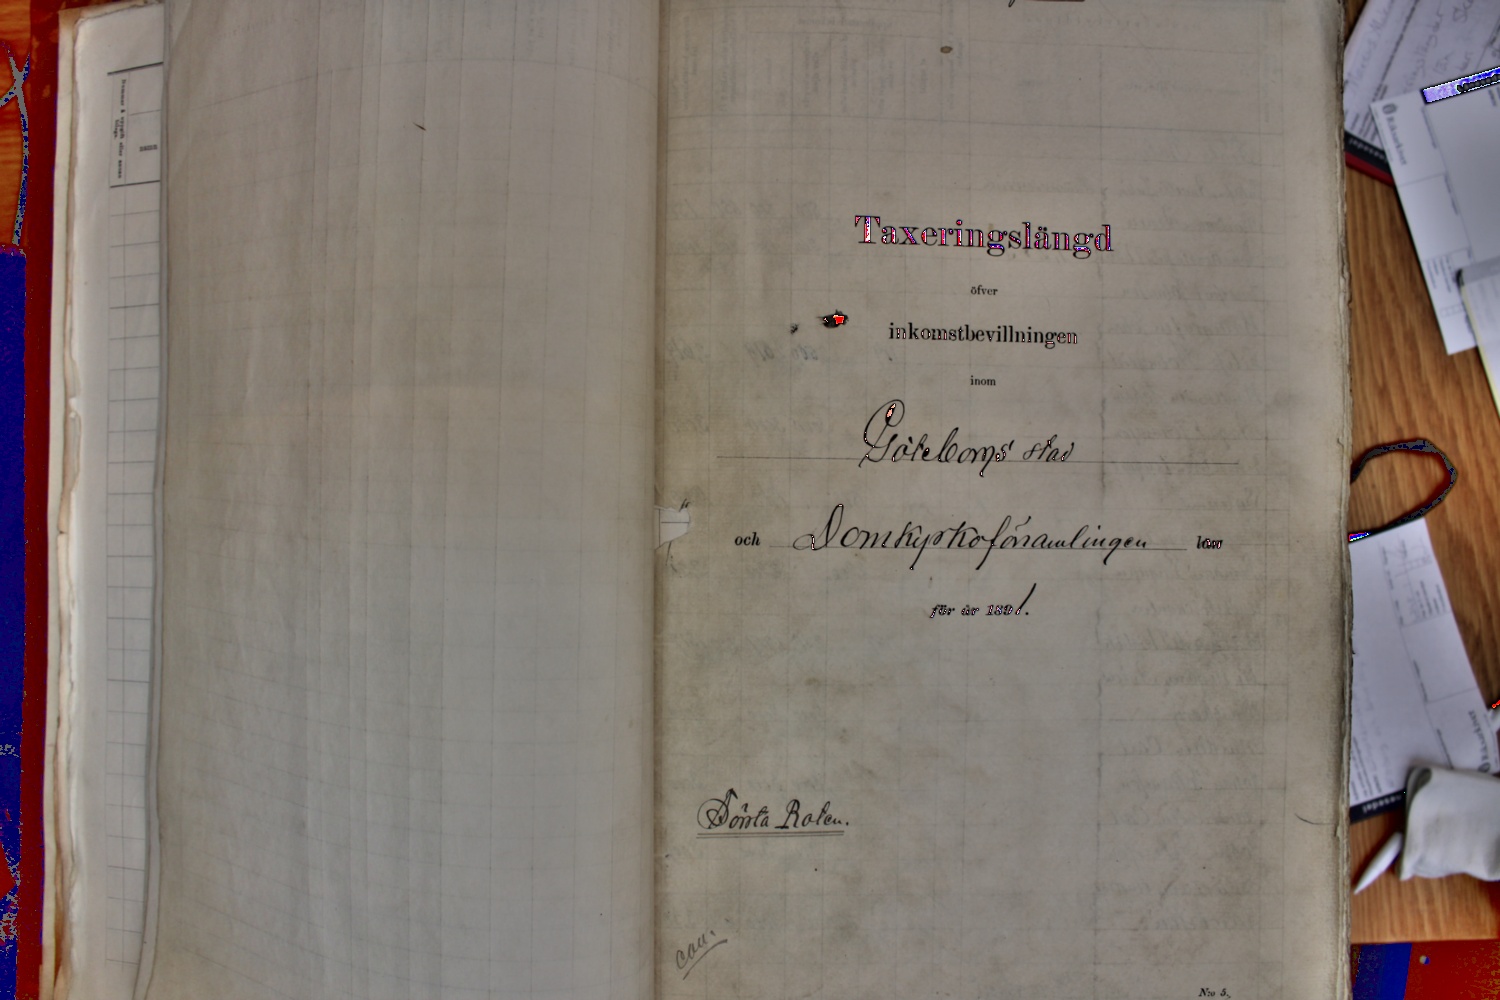 Taxeringslängd
öfver
inkomstbevillningen
inom
Göteborgs stad
och Domkyrkoförsamlingen län
för år 1891.
Sörsta Roten.
N:o 5.